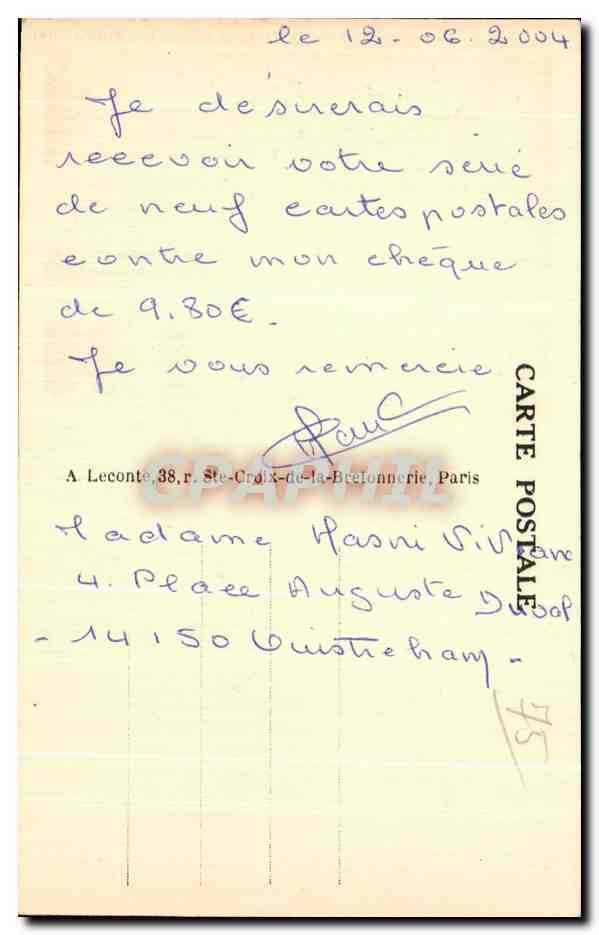 le 12-06.2004
Je désirerais
recevoir votre série
de neuf cartes postales
contre mon chèque
de 9.80€.
Je vous remercie
CARTE POSTALE
A. Leconte, 38, r. Ste-Croix-de-la-Bretonnerie, Paris
CPAPHIL
Madame Hasni Viviane
4. Place Auguste Duval
- 14150 Ouistreham -
75